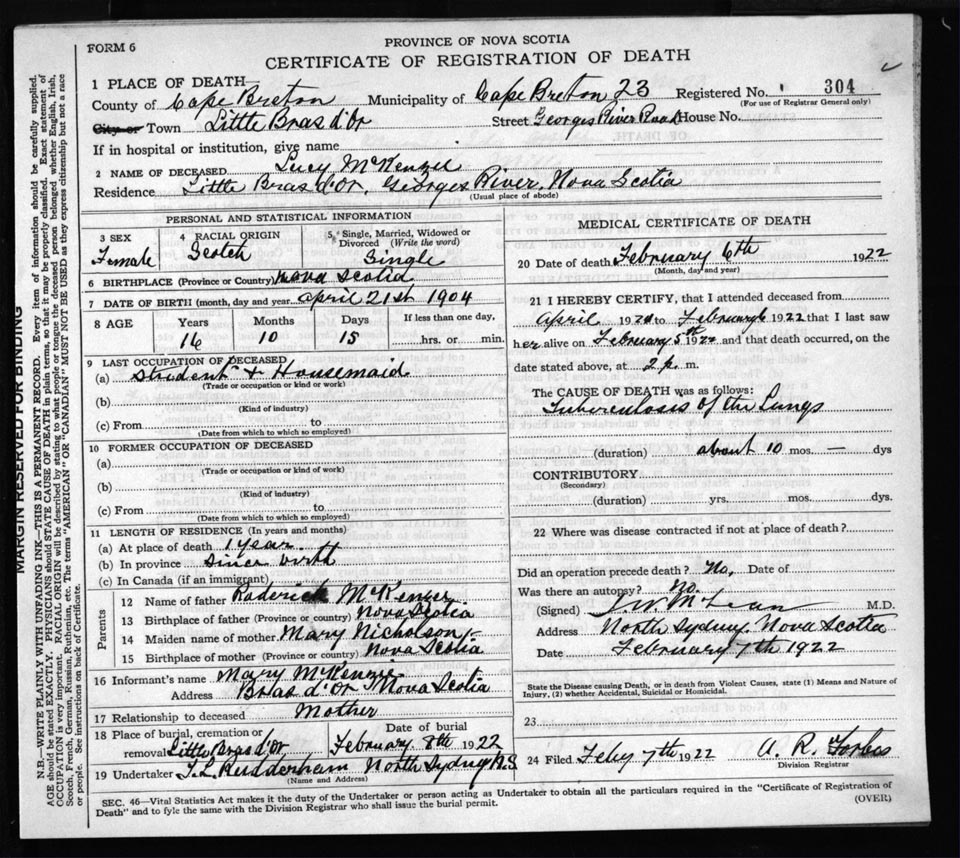 FORM 6
PROVINCE OF NOVA SCOTIA
CERTIFICATE OF REGISTRATION OF DEATH
1 PLACE OF DEATH
County of Cape Breton Municipality of Cape Breton 23 Registered No. 304
(For use of Registrar General only)
City or Town Little Bras d'Or Street Georges River Road House No.
If in hospital or institution, give name
2 NAME OF DECEASED Lucy McKenzie
Residence Little Bras d'Or, Georges River, Nova Scotia
(Usual place of abode)
PERSONAL AND STATISTICAL INFORMATION
3 SEX Female
4 RACIAL ORIGIN Scotch
5 Single, Married, Widowed or Divorced (Write the word) Single
6 BIRTHPLACE (Province or Country) Nova Scotia
7 DATE OF BIRTH (month, day and year) April 21st 1904
8 AGE Years Months Days If less than one day,
16 10 15 hrs. or min.
9 LAST OCCUPATION OF DECEASED
(a) Student & Housemaid
(Trade or occupation or kind or work)
(b)
(Kind of industry)
(c) From to
(Date from which to which so employed)
10 FORMER OCCUPATION OF DECEASED
(a)
(Trade or occupation or kind or work)
(b)
(Kind of industry)
(c) From to
(Date from which to which so employed)
11 LENGTH OF RESIDENCE (In years and months)
(a) At place of death 1 year
(b) In province since birth
(c) In Canada (if an immigrant)
Parents
12 Name of father Roderick McKenzie
13 Birthplace of father (Province or country) Nova Scotia
14 Maiden name of mother Mary Nicholson
15 Birthplace of mother (Province or country) Nova Scotia
16 Informant's name Mary McKenzie
Address Bras d'Or Nova Scotia
17 Relationship to deceased Mother
18 Place of burial, cremation or removal Little Bras d'Or
Date of burial
February 8th 1922
19 Undertaker T. L. Rudderham North Sydney N.S
(Name and Address)
MEDICAL CERTIFICATE OF DEATH
20 Date of death February 6th 1922
(Month, day and year)
21 I HEREBY CERTIFY, that I attended deceased from
April to February 6 1922 that I last saw
her alive on February 5th 1922 and that death occurred, on
date stated above, at 2 p. m.
The CAUSE OF DEATH was as follows:
Tuberculosis of the Lungs
(duration) about 10 mos — dys
CONTRIBUTORY
(Secondary)
(duration) yrs. mos. dys.
22 Where was disease contracted if not at place of death?
Did an operation precede death? No, Date of
Was there an autopsy? No.
(Signed) McLean M.D.
Address North Sydney, Nova Scotia
Date February 7th 1922
State the Disease causing Death, or in death from Violent Causes, state (1) Means and Nature of
Injury, (2) whether Accidental, Suicidal or Homicidal.
23
24 Filed Feby 7th 1922 A. R. Forbes
Division Registrar
SEC. 46—Vital Statistics Act makes it the duty of the Undertaker or person acting as Undertaker to obtain all the particulars required in the "Certificate of Registration of
Death" and to fyle the same with the Division Registrar who shall issue the burial permit.
(OVER)
MARGIN RESERVED FOR BINDING
N.B.—WRITE PLAINLY WITH UNFADING INK—THIS IS A PERMANENT RECORD. Every item of information should be carefully supplied.
AGE should be stated EXACTLY. PHYSICIANS should STATE CAUSE OF DEATH in plain terms, so that it may be properly classified. Exact statement of
OCCUPATION is very important. RACIAL ORIGIN will be described by stating to what people or tongue the deceased person belonged whether English, Irish,
Scotch, French, German, Russian, Ruthenian, etc. The terms "AMERICAN" OR "CANADIAN" MUST NOT BE USED as they express citizenship but not a race
or people. See instructions on back of Certificate.